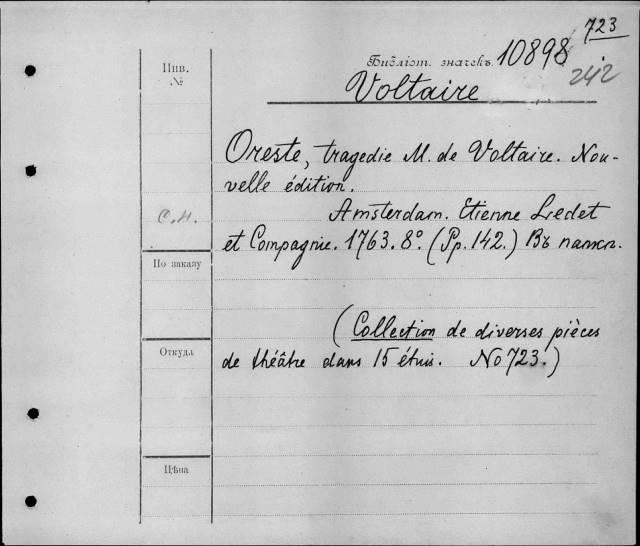 723
Инв. №
Библіот. значекъ 10898
242
Voltaire
Oreste, tragedie M. de Voltaire. Nou-
velle édition.
С.Н.
Amsterdam. Etienne Ledet
et Compagnie. 1763. 8º. (Pp. 142.) Въ папкѣ.
По заказу
(Collection de diverses pièces
Откуда
de théâtre dans 15 étuis. No 723.)
Цѣна